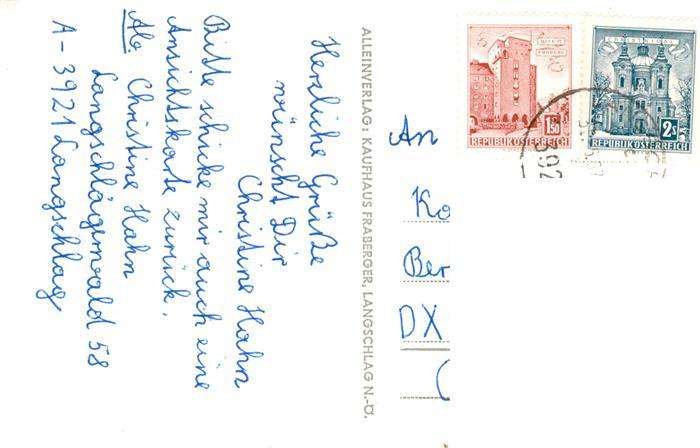 Herzliche Grüße
wünscht Dir
Christine Hahn
Bitte schicke mir auch eine
Ansichtskarte zurück.
Ab. Christine Hahn
Langschlägerwald 58
A-3921 Langschlag
ALLEINVERLAG: KAUFHAUS FRABERGER, LANGSCHLAG N.-Ö.
1.50
REPUBLIK ÖSTERREICH
CHRISTKINDL
2s
REPUBLIK ÖSTERREICH
392
An
Ko
Ber
DX